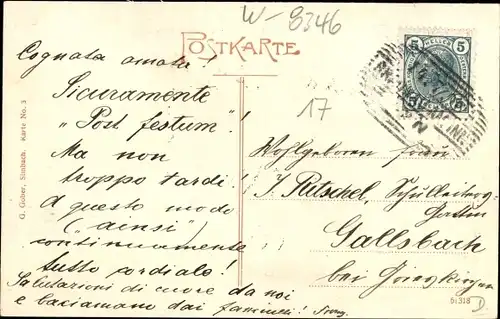 W-8346
POSTKARTE
5 HELLER 5
Cognata amata!
Sicuramente
"Post festum"!
Ma non
troppo tardi!
A questo modo
("ainsi")
continuamente
tutto cordiale!
Salutazioni di cuore da noi
e baciamano dai famineli!
17
Wohlgeboren Frau
J. Pitschel, Schulleiters-
Gattin
Gallsbach
bei Grieskirchen
G. Gober, Simbach. Karte No. 3
51318